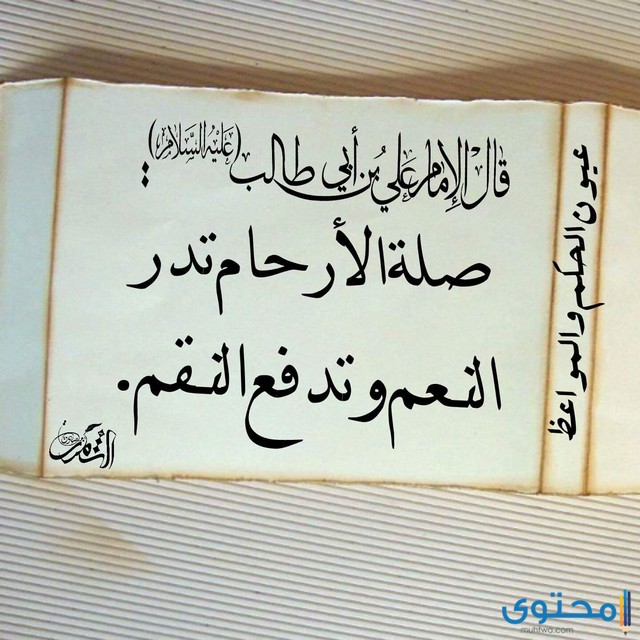 قال الإمام علي بن أبي طالب (عليه السلام):
صلة الأرحام تدر
النعم وتدفع النقم.
عيون الحكم والمواعظ
محتوى
muhtwa.com